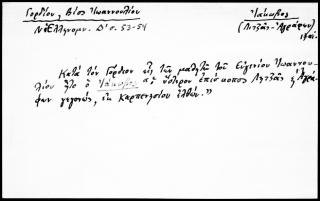 Γορδίου, Βίος Ἰωαννουλίου
Ἰάκωβος
Νέος Ἑλληνομν. Δ' σ. 53-54
(Λιτζᾶς-Ἀγράφων)
Κατὰ τὸν Γόρδιον εἷς τῶν μαθητῶν τοῦ Εὐγενίου Ἰωαννου-
λίου ἦτο ὁ Ἰάκωβος "ὁ ὕστερον ἐπίσκοπος Λητζᾶς & Ἀγρά-
φων γεγονώς, ἐκ Καρπενησίου ἐλθών."